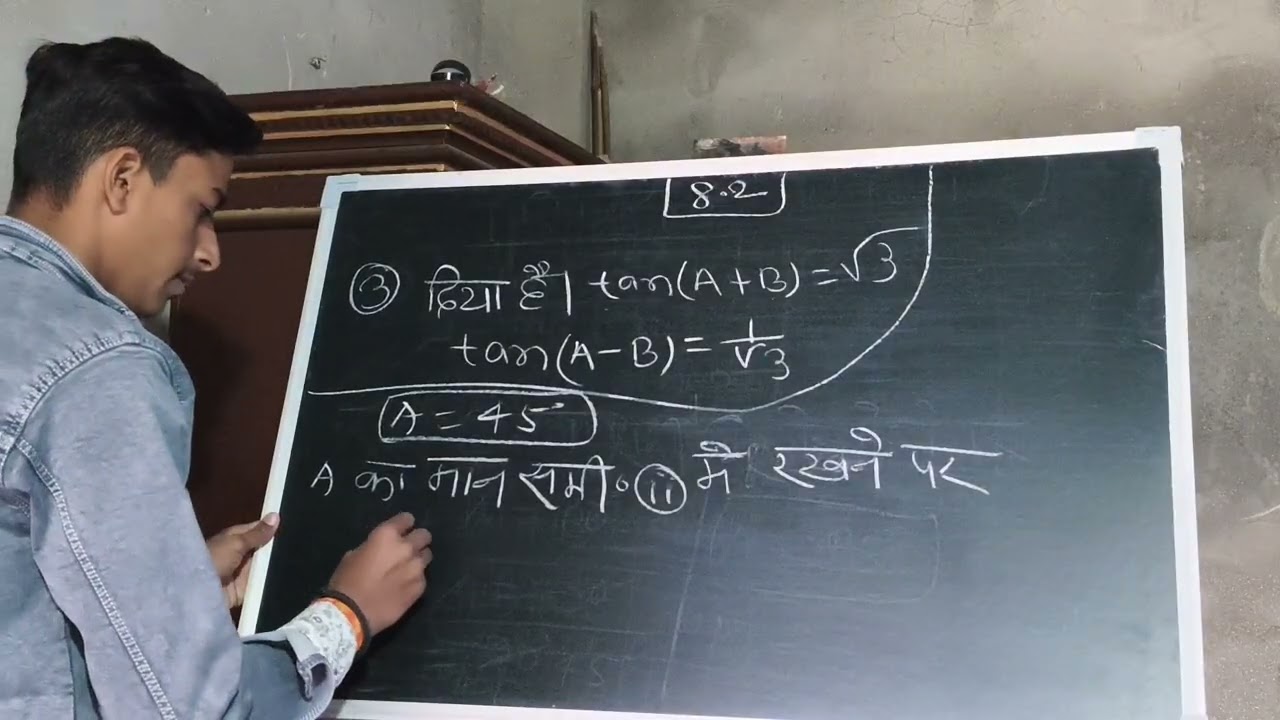 8.2
③ दिया है। tan(A+B)=√3
tan(A-B)=1/√3
A = 45
A का मान समी॰ (ii) मे रखने पर